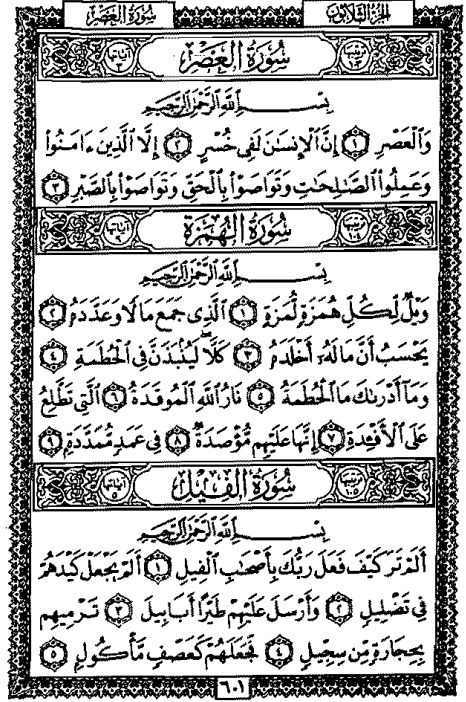 الجُزْءُ الثَّلَاثُونَ
سُورَةُ العَصْرِ
ترتيبها ١٠٣ سُورَةُ العَصْرِ آياتها ٣
بِسْمِ اللَّهِ الرَّحْمَٰنِ الرَّحِيمِ
وَالْعَصْرِ ١ إِنَّ الْإِنسَٰنَ لَفِى خُسْرٍ ٢ إِلَّا الَّذِينَ ءَامَنُوا
وَعَمِلُوا الصَّٰلِحَٰتِ وَتَوَاصَوْا بِالْحَقِّ وَتَوَاصَوْا بِالصَّبْرِ ٣
ترتيبها ١٠٤ سُورَةُ الهُمَزَةِ آياتها ٩
بِسْمِ اللَّهِ الرَّحْمَٰنِ الرَّحِيمِ
وَيْلٌ لِّكُلِّ هُمَزَةٍ لُّمَزَةٍ ١ الَّذِى جَمَعَ مَالًا وَعَدَّدَهُۥ ٢
يَحْسَبُ أَنَّ مَالَهُۥٓ أَخْلَدَهُۥ ٣ كَلَّا ۖ لَيُنۢبَذَنَّ فِى الْحُطَمَةِ ٤
وَمَآ أَدْرَىٰكَ مَا الْحُطَمَةُ ٥ نَارُ اللَّهِ الْمُوقَدَةُ ٦ الَّتِى تَطَّلِعُ
عَلَى الْأَفْـِٔدَةِ ٧ إِنَّهَا عَلَيْهِم مُّؤْصَدَةٌ ٨ فِى عَمَدٍ مُّمَدَّدَةٍۭ ٩
ترتيبها ١٠٥ سُورَةُ الفِيلِ آياتها ٥
بِسْمِ اللَّهِ الرَّحْمَٰنِ الرَّحِيمِ
أَلَمْ تَرَ كَيْفَ فَعَلَ رَبُّكَ بِأَصْحَٰبِ الْفِيلِ ١ أَلَمْ يَجْعَلْ كَيْدَهُمْ
فِى تَضْلِيلٍ ٢ وَأَرْسَلَ عَلَيْهِمْ طَيْرًا أَبَابِيلَ ٣ تَرْمِيهِم
بِحِجَارَةٍ مِّن سِجِّيلٍ ٤ فَجَعَلَهُمْ كَعَصْفٍ مَّأْكُولٍۭ ٥
٦٠١